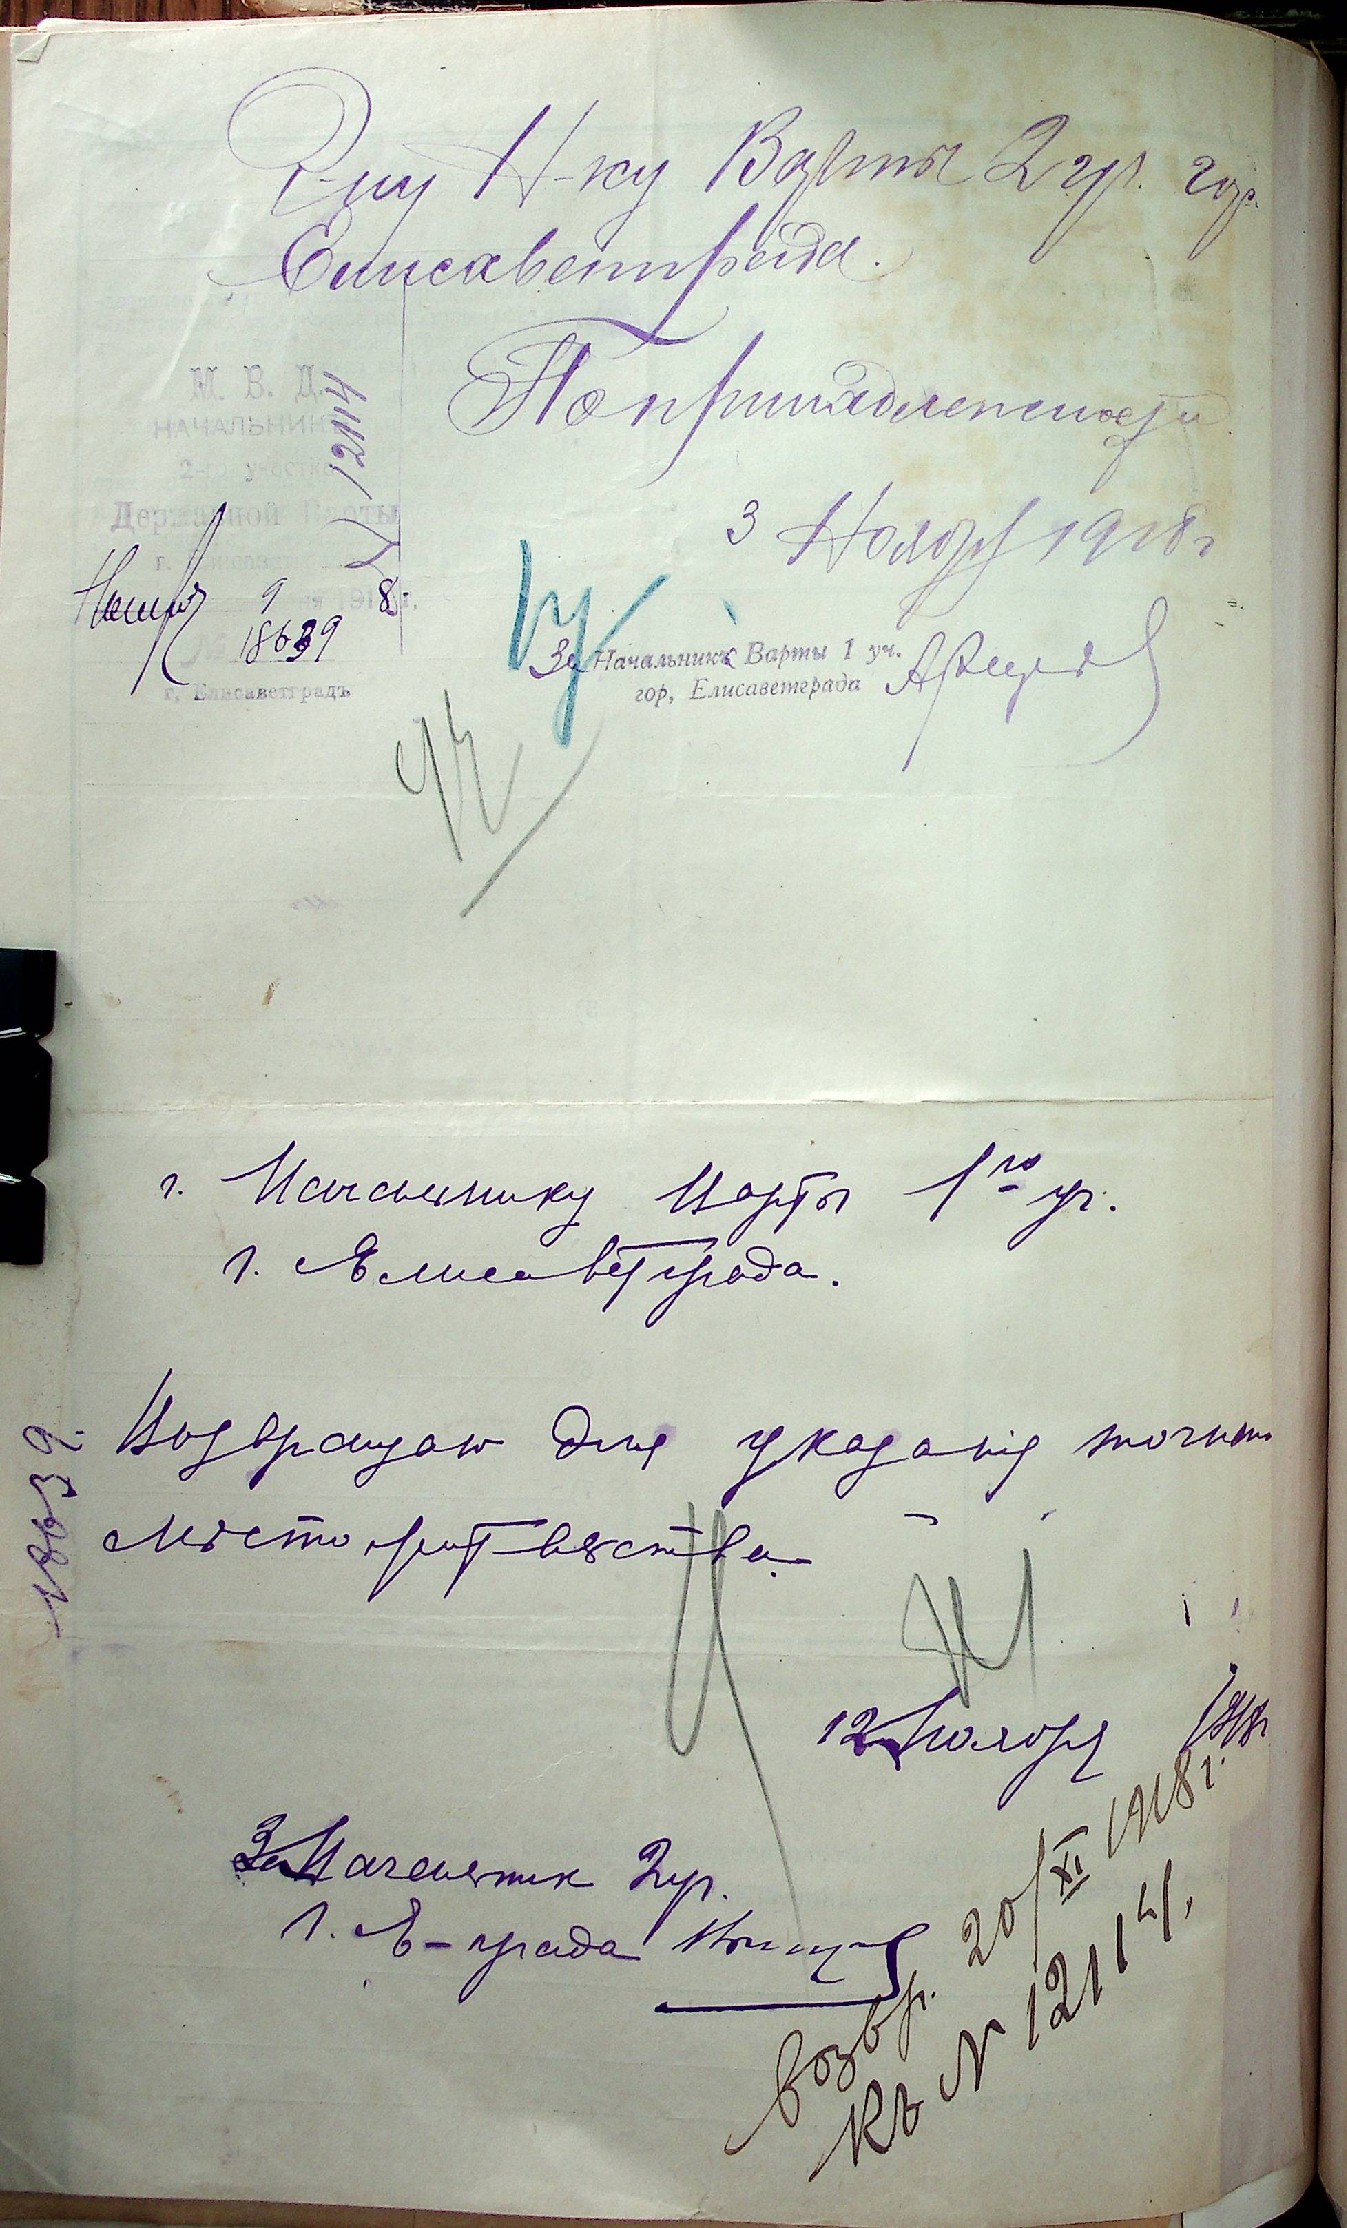 Г-ну Н-ку Варты 2 уч. гор.
Елисаветграда.
По принадлежности
3 Ноября 1918 г
За Начальника Варты 1 уч.
гор, Елисаветграда
М. В. Д.
НАЧАЛЬНИК
2-го участка
Державной Варты
Ноября 9 1918 г.
№ 18639
г, Елисаветградъ
№ 12114
г. Начальнику Варты 1го уч.
г. Елисаветграда.
Возвращаю для указания точного
место
18639.
12 Ноября 1918 г
За Начальник 2 уч.
г. Е-града
возвр. 20/XI 1918 г.
Къ № 12114.